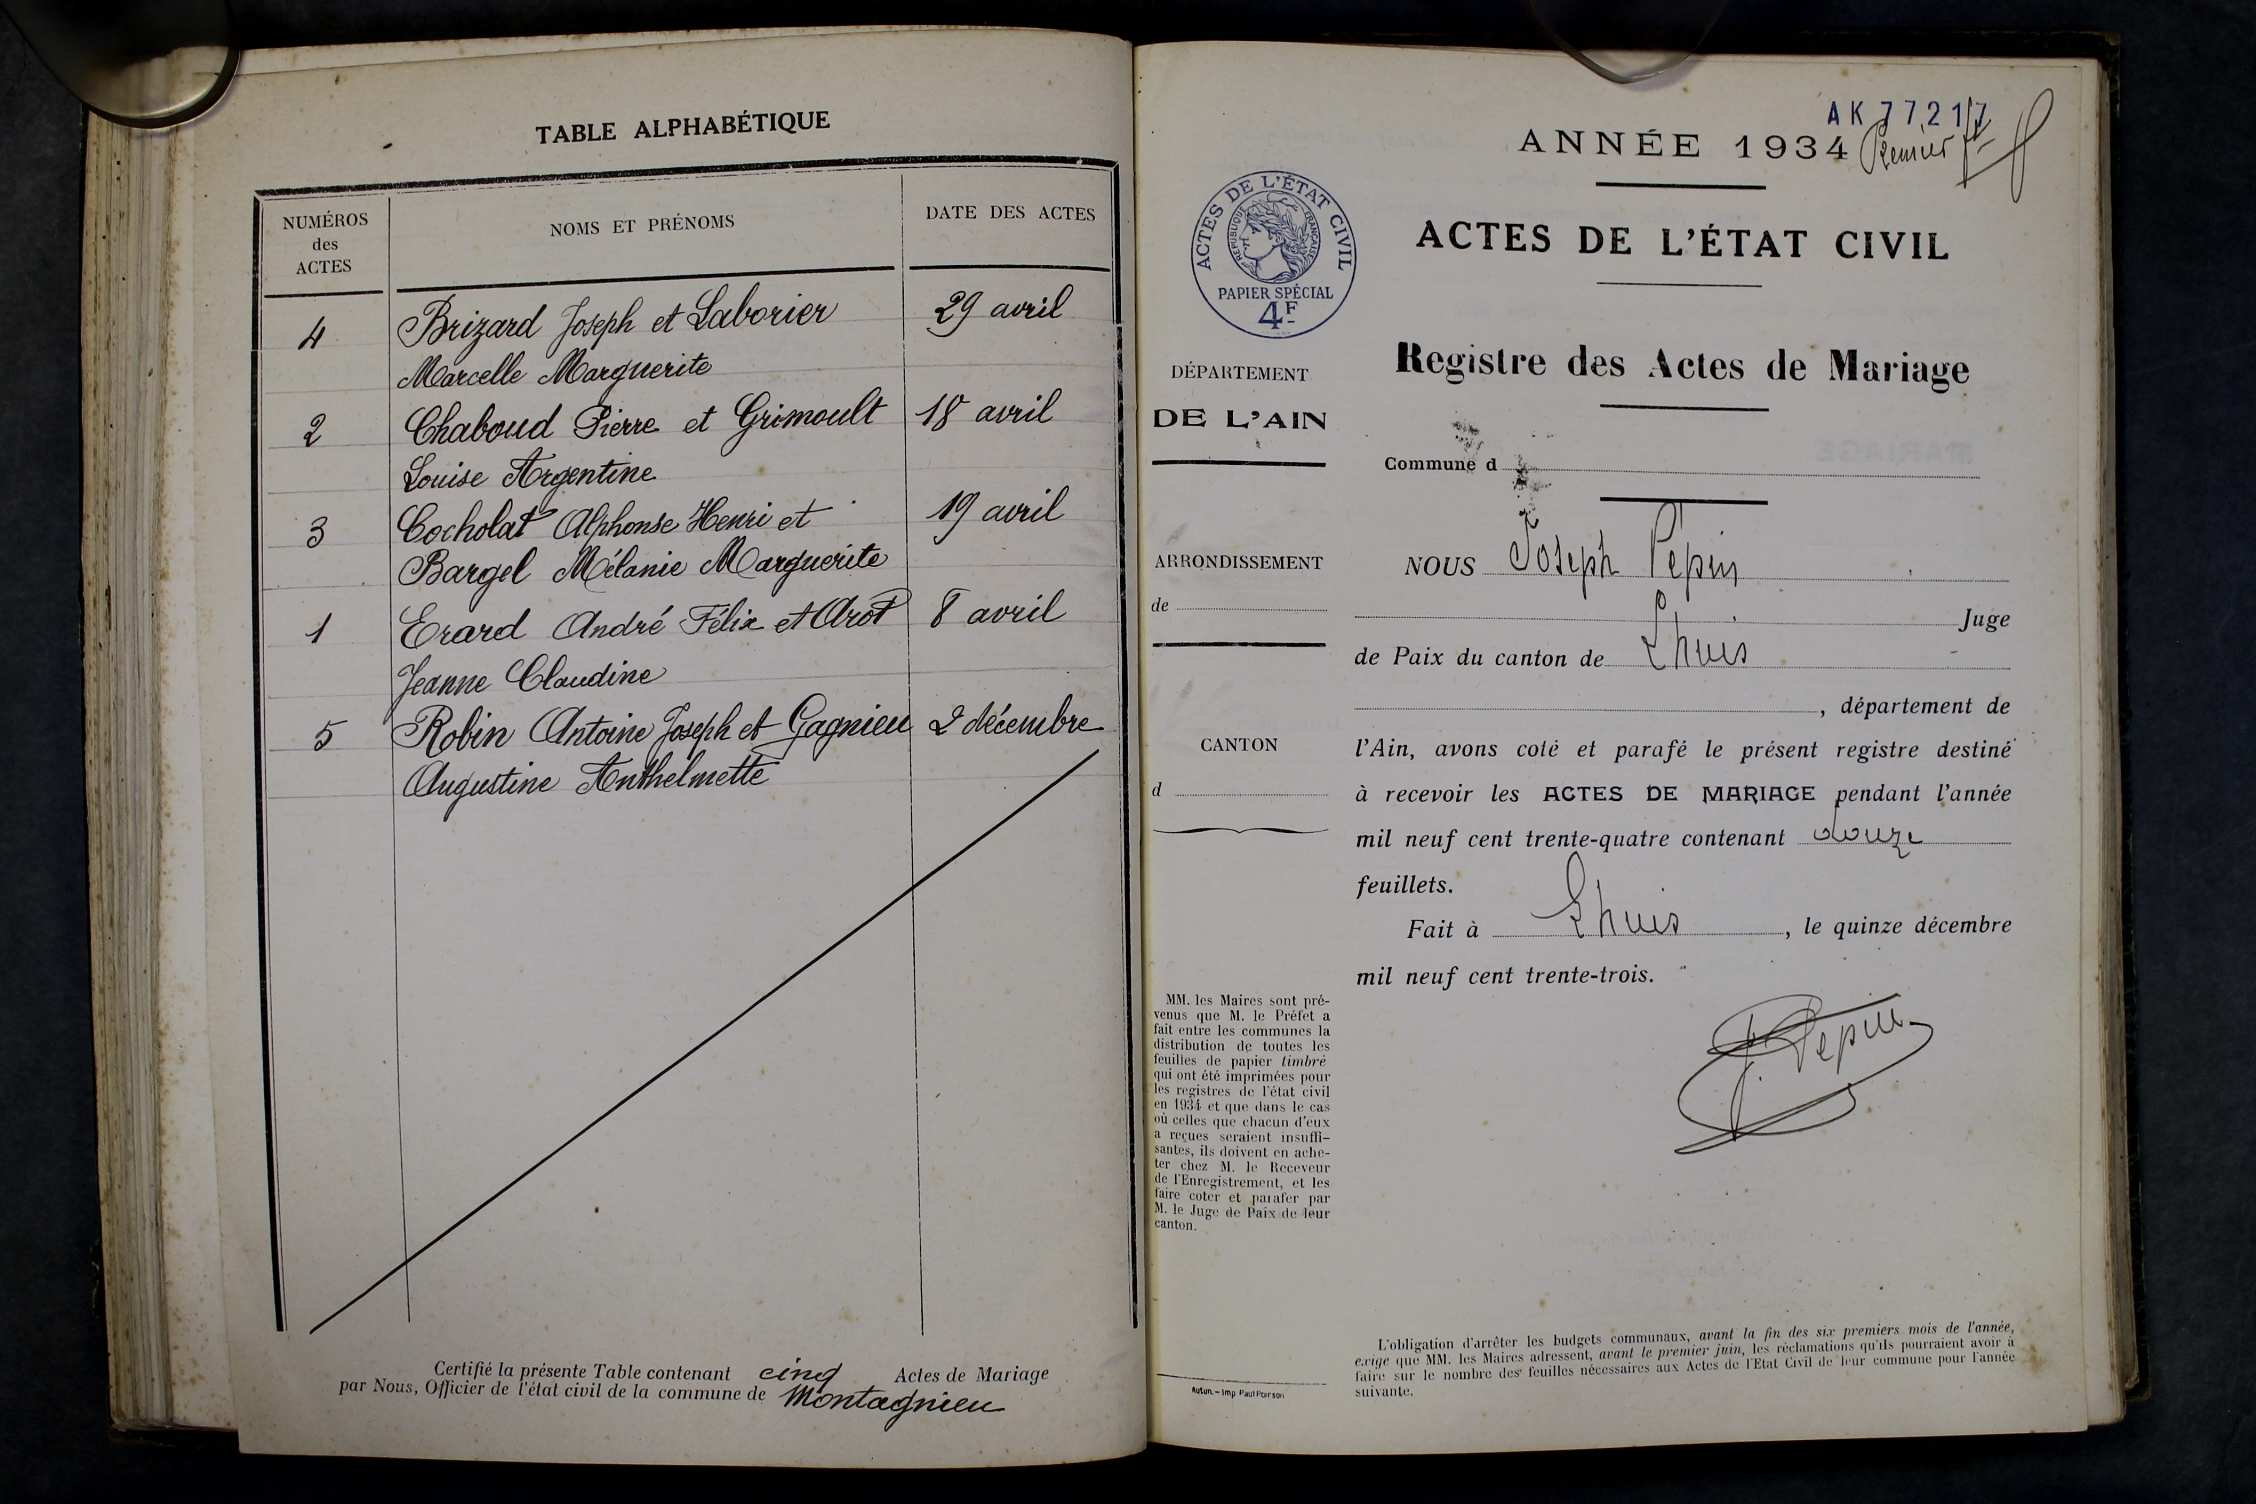 TABLE ALPHABÉTIQUE
NUMÉROS
des
ACTES
NOMS ET PRÉNOMS
DATE DES ACTES
4 Brizard Joseph et Laborier 29 avril
Marcelle Marguerite
2 Chaboud Pierre et Grimoult 18 avril
Louise Argentine
3 Cocholat Alphonse Henri et 19 avril
Bargel Mélanie Marguerite
1 Erard André Félix et Arot 8 avril
Jeanne Claudine
5 Robin Antoine Joseph et Gagnieu 2 décembre
Augustine Anthelmette
Certifié la présente Table contenant cinq Actes de Mariage
par Nous, Officier de l'état civil de la commune de Montagnieu
AK 77217
ANNÉE 1934 Premier
ACTES DE L'ÉTAT CIVIL
RÉPUBLIQUE FRANÇAISE
PAPIER SPÉCIAL
4F
ACTES DE L'ÉTAT CIVIL
Registre des Actes de Mariage
DÉPARTEMENT
DE L'AIN
Commune d
ARRONDISSEMENT
de
CANTON
d
NOUS Joseph Pepin
Juge
de Paix du canton de Lhuis
, département de
l'Ain, avons coté et parafé le présent registre destiné
à recevoir les ACTES DE MARIAGE pendant l'année
mil neuf cent trente-quatre contenant douze
feuillets.
Fait à Lhuis, le quinze décembre
mil neuf cent trente-trois.
J. Pepin
MM. les Maires sont pré-
venus que M. le Préfet a
fait entre les communes la
distribution de toutes les
feuilles de papier timbré
qui ont été imprimées pour
les registres de l'état civil
en 1934 et que dans le cas
où celles que chacun d'eux
a reçues seraient insuffi-
santes, ils doivent en ache-
ter chez M. le Receveur
de l'Enregistrement, et les
faire coter et parafer par
M. le Juge de Paix de leur
canton.
Autun. - Imp Paul Poirson
L'obligation d'arrêter les budgets communaux, avant la fin des six premiers mois de l'année,
exige que MM. les Maires adressent, avant le premier juin, les réclamations qu'ils pourraient avoir à
faire sur le nombre des feuilles nécessaires aux Actes de l'Etat Civil de leur commune pour l'année
suivante.